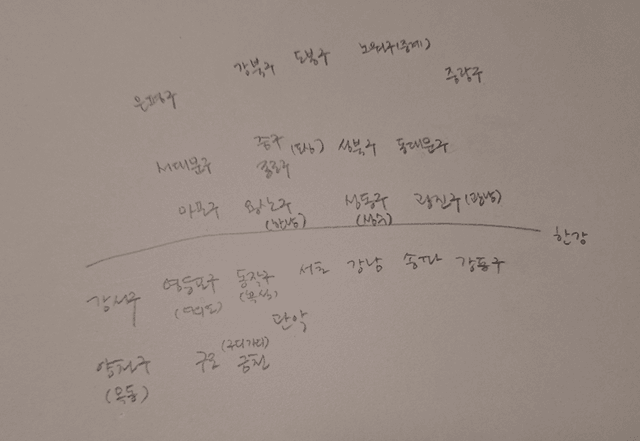 강북구 도봉구 노원구(중계)
중랑구
은평구
중구
서대문구 종로구 성북구 동대문구
마포구 용산구 성동구 광진구(광남)
(한남) (성수)
한강
강서구 영등포구 동작구 서초 강남 송파 강동구
(여의도)
관악
양천구 구로 (구디가디) 금천
(목동)